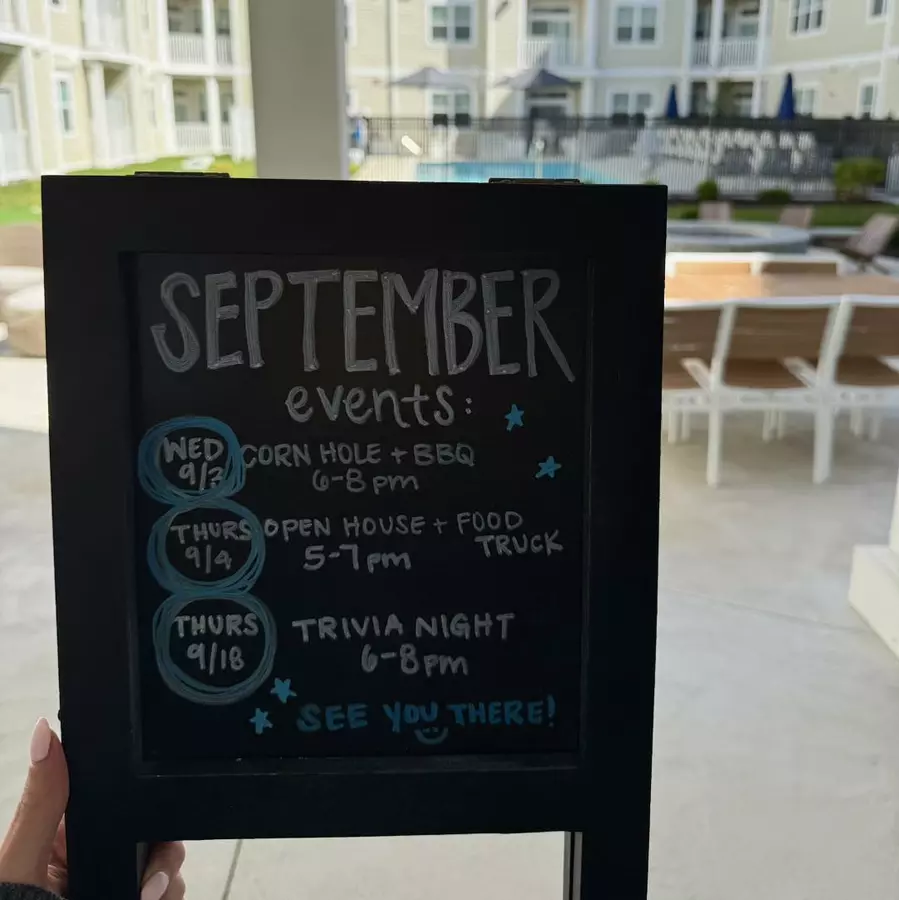 SEPTEMBER
events:
WED CORN HOLE + BBQ
9/3 6-8pm
THURS OPEN HOUSE + FOOD
TRUCK
9/4 5-7pm
THURS TRIVIA NIGHT
9/18 6-8pm
SEE YOU THERE!